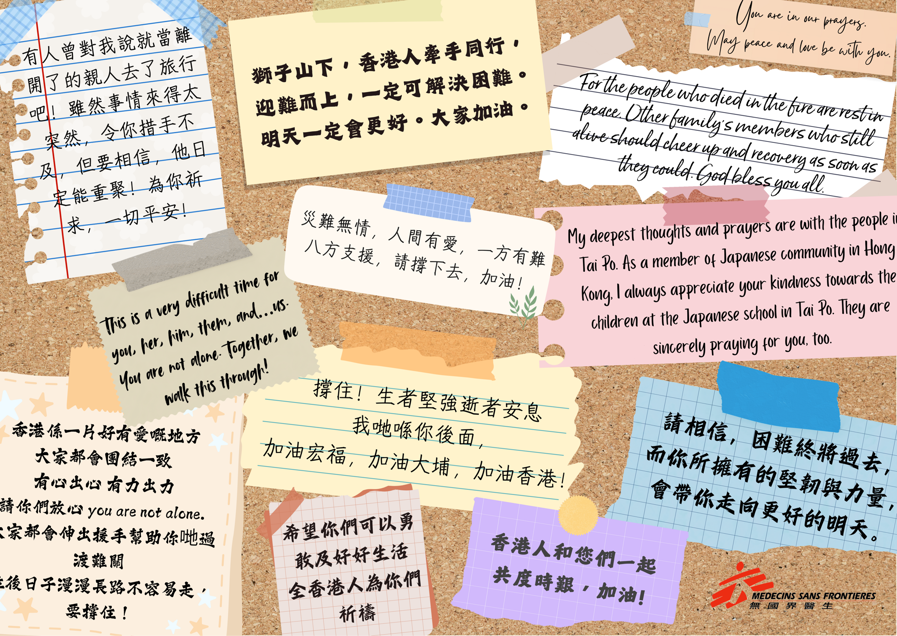 有人曾對我說就當離
開了的親人去了旅行
吧! 雖然事情來得太
突然, 令你措手不
及, 但要相信, 他日
定能重聚! 為你祈
求, 一切平安!
獅子山下，香港人牽手同行，
迎難而上，一定可解決困難。
明天一定會更好。大家加油。
You are in our prayers.
May peace and love be with you.
For the people who died in the fire are rest in
peace. Other family's members who still
alive should cheer up and recovery as soon as
they could. God bless you all.
災難無情, 人間有愛, 一方有難
八方支援, 請撐下去, 加油!
My deepest thoughts and prayers are with the people in
Tai Po. As a member of Japanese community in Hong
Kong, I always appreciate your kindness towards the
children at the Japanese school in Tai Po. They are
sincerely praying for you, too.
This is a very difficult time for
you, her, him, them, and...us.
You are not alone. Together, we
walk this through!
撐住! 生者堅強逝者安息
我哋喺你後面,
加油宏福, 加油大埔, 加油香港!
請相信, 困難終將過去,
而你所擁有的堅韌與力量,
會帶你走向更好的明天。
香港係一片好有愛嘅地方
大家都會團結一致
有心出心 有力出力
請你們放心 you are not alone.
大家都會伸出援手幫助你哋過
渡難關
後日子漫漫長路不容易走,
要撐住!
希望你們可以勇
敢及好好生活
全香港人為你們
祈禱
香港人和您們一起
共度時艱，加油!
MEDECINS SANS FRONTIERES
無國界醫生